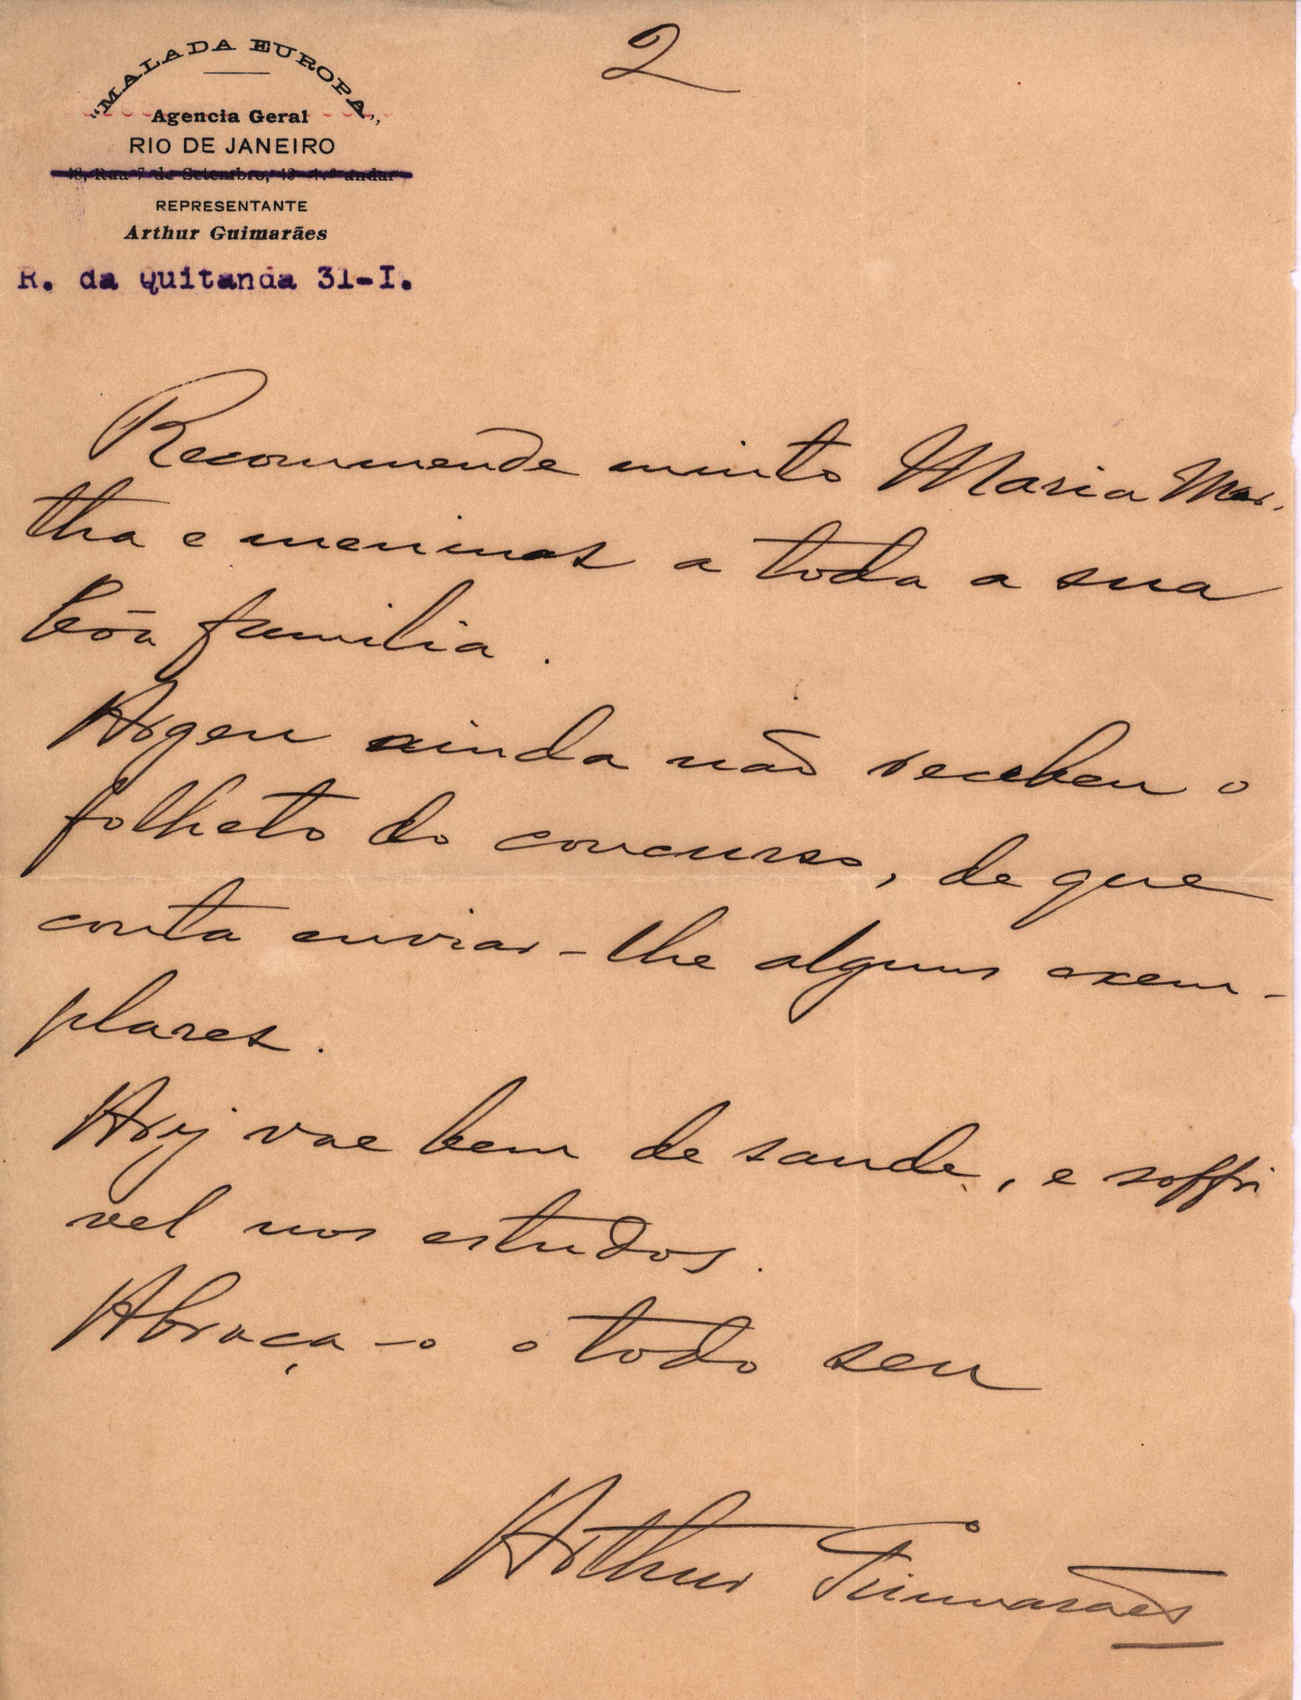 2
"MALA DA EUROPA",
Agencia Geral
RIO DE JANEIRO
48, Rua 7 de Setembro, 48-1.º andar
REPRESENTANTE
Arthur Guimarães
R. da Quitanda 31-I.
Recommende muito Maria Mar-
tha e meninos a toda a sua
bôa familia.
Argeu ainda não recebeu o
folheto do concurso, de que
conta enviar-lhe alguns exem-
plares.
Ary vae bem de saude, e soffri
vel nos estudos.
Abraça-o o todo seu
Arthur Guimarães